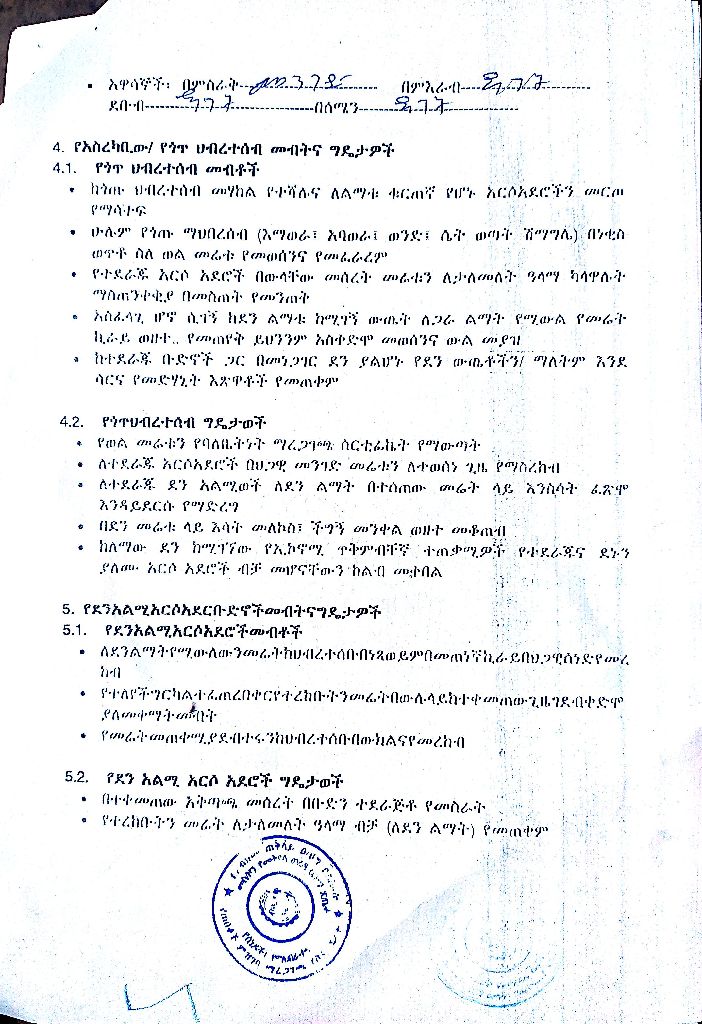 • አዋሳኞች፡ በምስራቅ---መንገድ--- በምእራብ---ዳገት---
ደቡብ---ዳገት---በሰሜን---ዳገት---
4. የአስረካቢው/ የጎጥ ህብረተሰብ መብትና ግዴታዎች
4.1. የጎጥ ህብረተሰብ መብቶች
• ከጎጡ ህብረተሰብ መሃከል የተሻሉና ለልማቱ ቁርጠኛ የሆኑ አርሶአደሮችን መርጦ
የማሳተፍ
• ሁሉም የጎጡ ማህበረሰብ (እማወራ፣ አባወራ፣ ወንድ፣ ሴት ወጣት ሽማግሌ) በነቂስ
ወጥቶ ስለ ወል መሬቱ የመወሰንና የመፈራረም
• የተደራጁ አርሶ አደሮች በውላቸው መሰረት መሬቱን ለታለመለት ዓላማ ካላዋሉት
ማስጠንቀቂያ በመስጠት የመንጠቅ
• አስፈላጊ ሆኖ ሲገኝ ከደን ልማቱ ከሚገኝ ውጤት ለጋራ ልማት የሚውል የመሬት
ኪራይ ወዘተ.. የመጠየቅ ይህንንም አስቀድሞ መወሰንና ውል መያዝ
• ከተደራጁ ቡድኖች ጋር በመነጋገር ደን ያልሆኑ የደን ውጤቶችን/ ማለትም እንደ
ሳርና የመድሃኒት እጽዋቶች የመጠቀም
4.2. የጎጥህብረተሰብ ግዴታወች
• የወል መሬቱን የባለቤትነት ማረጋገጫ ሰርቲፊኬት የማውጣት
• ለተደራጁ አርሶአደሮች በህጋዊ መንገድ መሬቱን ለተወሰነ ጊዜ የማስረከብ
• ለተደራጁ ደን አልሚወች ለደን ልማት በተሰጠው መሬት ላይ እንስሳት ፈጽሞ
እንዳይደርሱ የማድረግ
• በደን መሬቱ ላይ እሳት መለኮስ፣ ችግኝ መንቀል ወዘተ መቆጠብ
• ከለማው ደን ከሚገኘው የኢኮኖሚ ጥቅምብቸኛ ተጠቃሚዎች የተደራጁና ደኑን
ያለሙ አርሶ አደሮች ብቻ መሆናቸውን ከልብ መቀበል
5. የደንአልሚአርሶአደርቡድኖችመብትናግዴታዎች
5.1. የደንአልሚአርሶአደሮችመብቶች
• ለደንልማትየሚውለውንመሬትከህብረተሰቡበነጻወይምበመጠነኛኪራይበህጋዊሰነድየመረ
ከብ
• የተለየችግርካልተፈጠረበቀርየተረከቡትንመሬትበውሉላይከተቀመጠውጊዜገደብቀድሞ
ያለመቀማትመብት
• የመሬትመጠቀሚያደብተሩንከህብረተሰቡበውክልናየመረከብ
5.2. የደን አልሚ አርሶ አደሮች ግዴታወች
• በተቀመጠው አቅጣጫ መሰረት በቡድን ተደራጅቶ የመስራት
• የተረከቡትን መሬት ለታለመለት ዓላማ ብቻ (ለደን ልማት) የመጠቀም